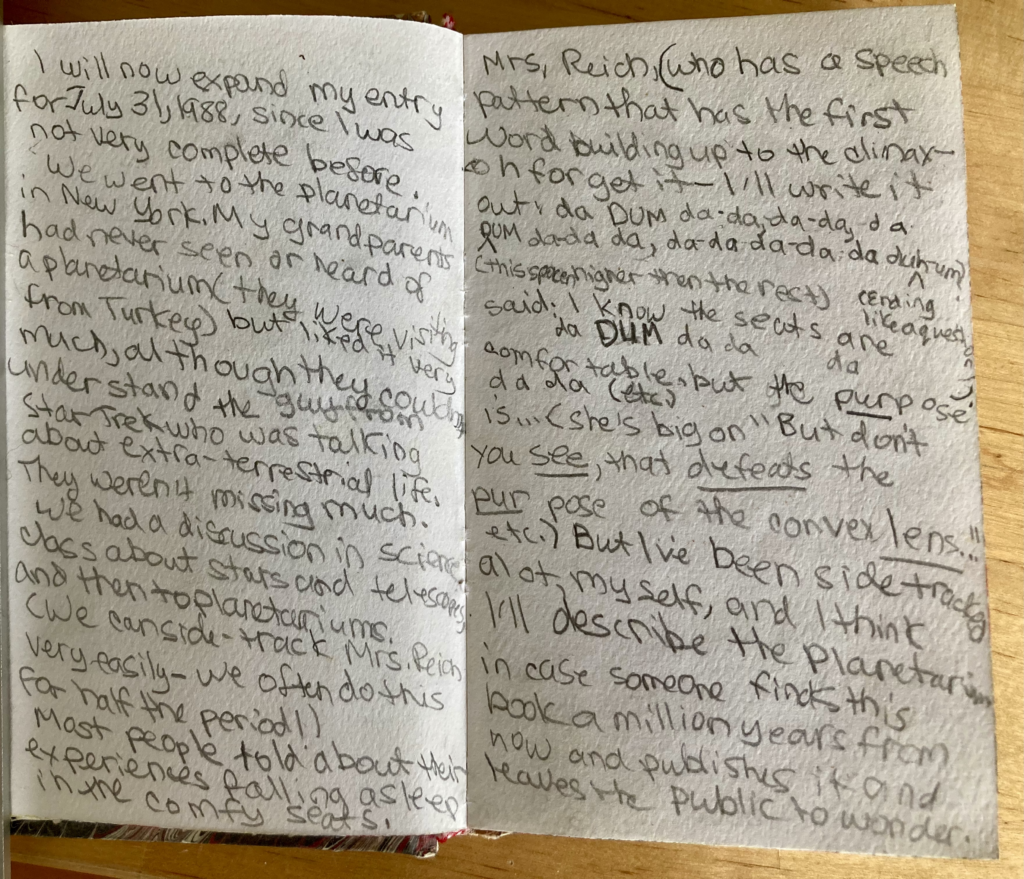 I will now expand my entry
for July 31, 1988, since I was
not very complete before.
We went to the planetarium
in New York. My grandparents
had never seen or heard of
a planetarium (they were visiting
from Turkey) but liked it very
much, although they couldn't
understand the guy from
Star Trek who was talking
about extra-terrestrial life.
They weren't missing much.
We had a discussion in science
class about stars and telescopes
and then to planetariums.
(We can side-track Mrs. Reich
very easily - we often do this
for half the period!)
Most people told about their
experiences falling asleep
in the comfy seats.
Mrs. Reich, (who has a speech
pattern that has the first
word building up to the climax-
oh forget it - I'll write it
out: da DUM da-da, da-da, da
DUM da-da da, da-da-da-da-da duhrum)
(this space higher then the rest) (ending
like a question)
said: I know the seats are
da DUM da da da
comfortable, but the purpose
da da (etc)
is... (she's big on "But don't
you see, that defeats the
purpose of the convex lens..."
etc.) But I've been sidetracked
alot, myself, and I think
I'll describe the planetarium
in case someone finds this
book a million years from
now and publishes it and
leaves the public to wonder.